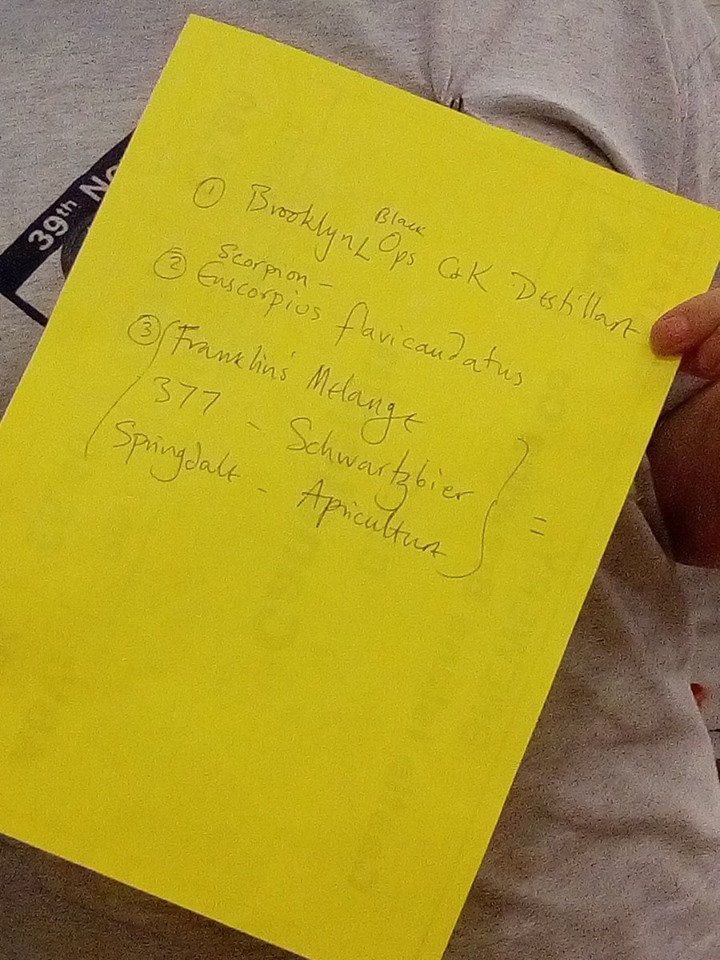 39th No
① Brooklyn Black Ops C&K Destillare
② Scorpion -
Euscorpius flavicaudatus
③ Franklins' Melange
377 - Schwartzbier
Springdale - Apriculture
=